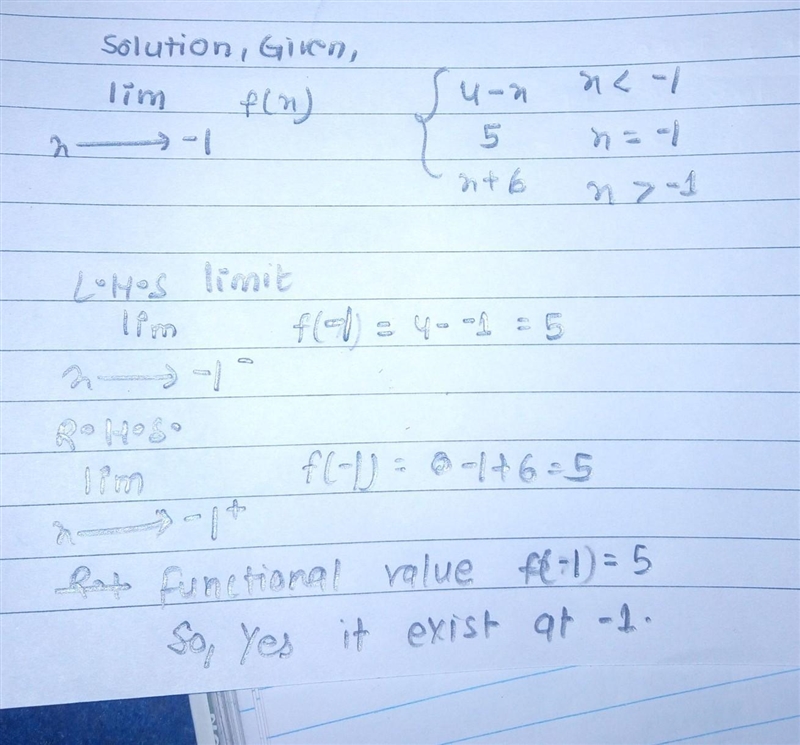 Solution, Given,
lim f(x) { 4-x x < -1
x → -1 5 x = -1
x+6 x > -1
L.H.S limit
lim f(-1) = 4 - -1 = 5
x → -1⁻
R.H.S.
lim f(-1) = -1+6 = 5
x → -1⁺
functional value f(-1) = 5
So, Yes it exist at -1.